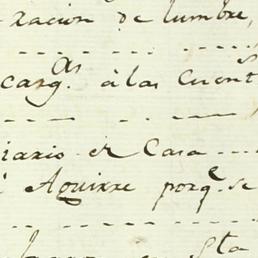 xacion de lumbre,
cargas. à las Cuent
iario el Casa
Aguirre porqe. se